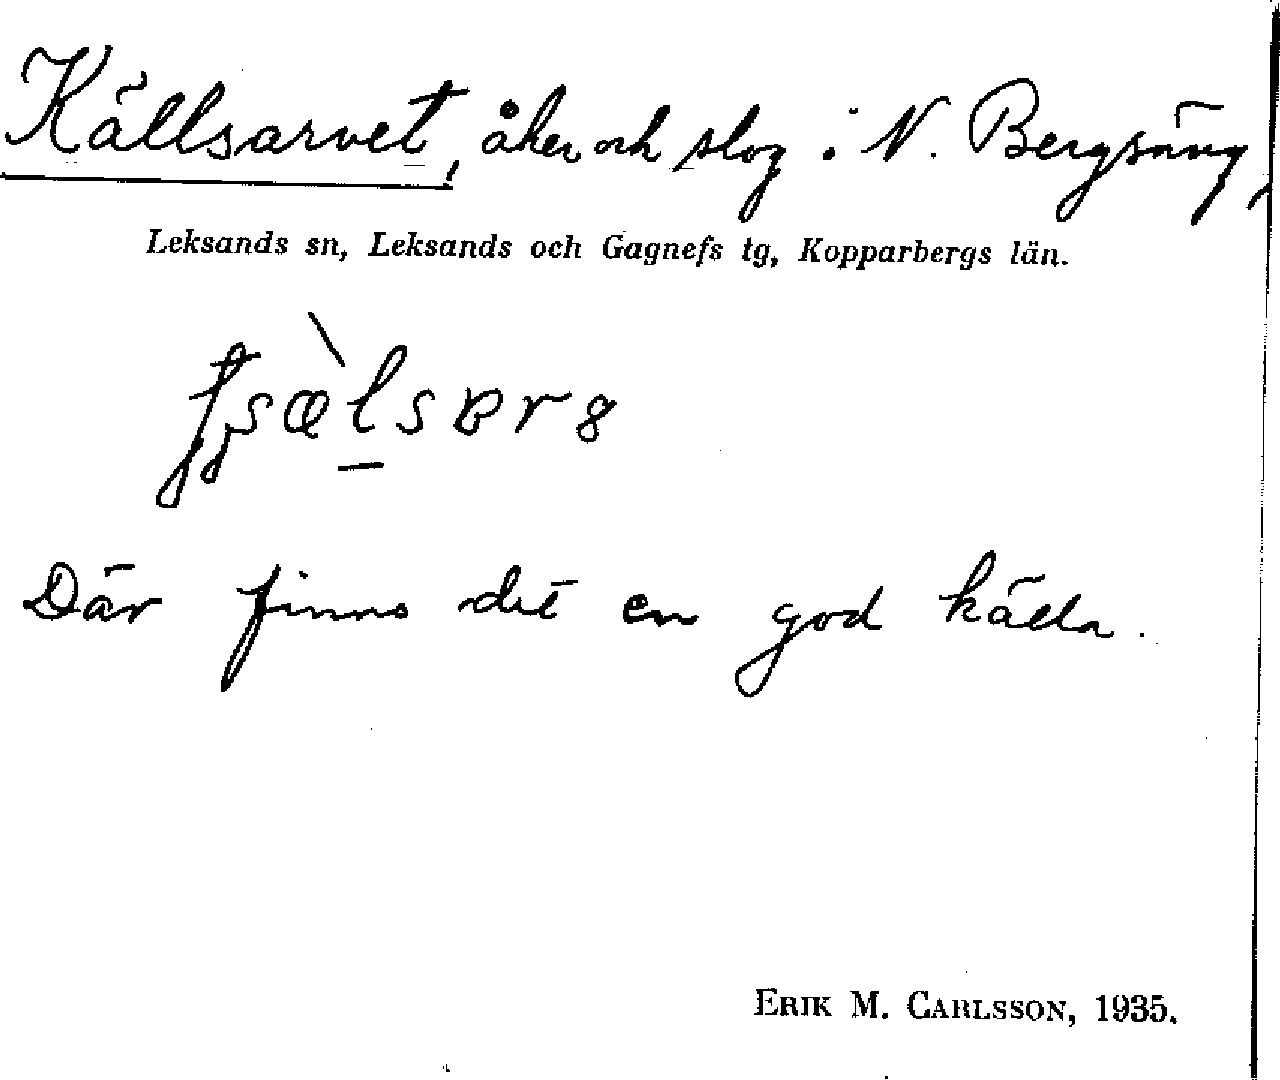 Källsarvet, åker och slog i N. Bergsäng,
Leksands sn, Leksands och Gagnefs tg, Kopparbergs län.
Där finns det en god källa.
ERIK M. CARLSSON, 1935.